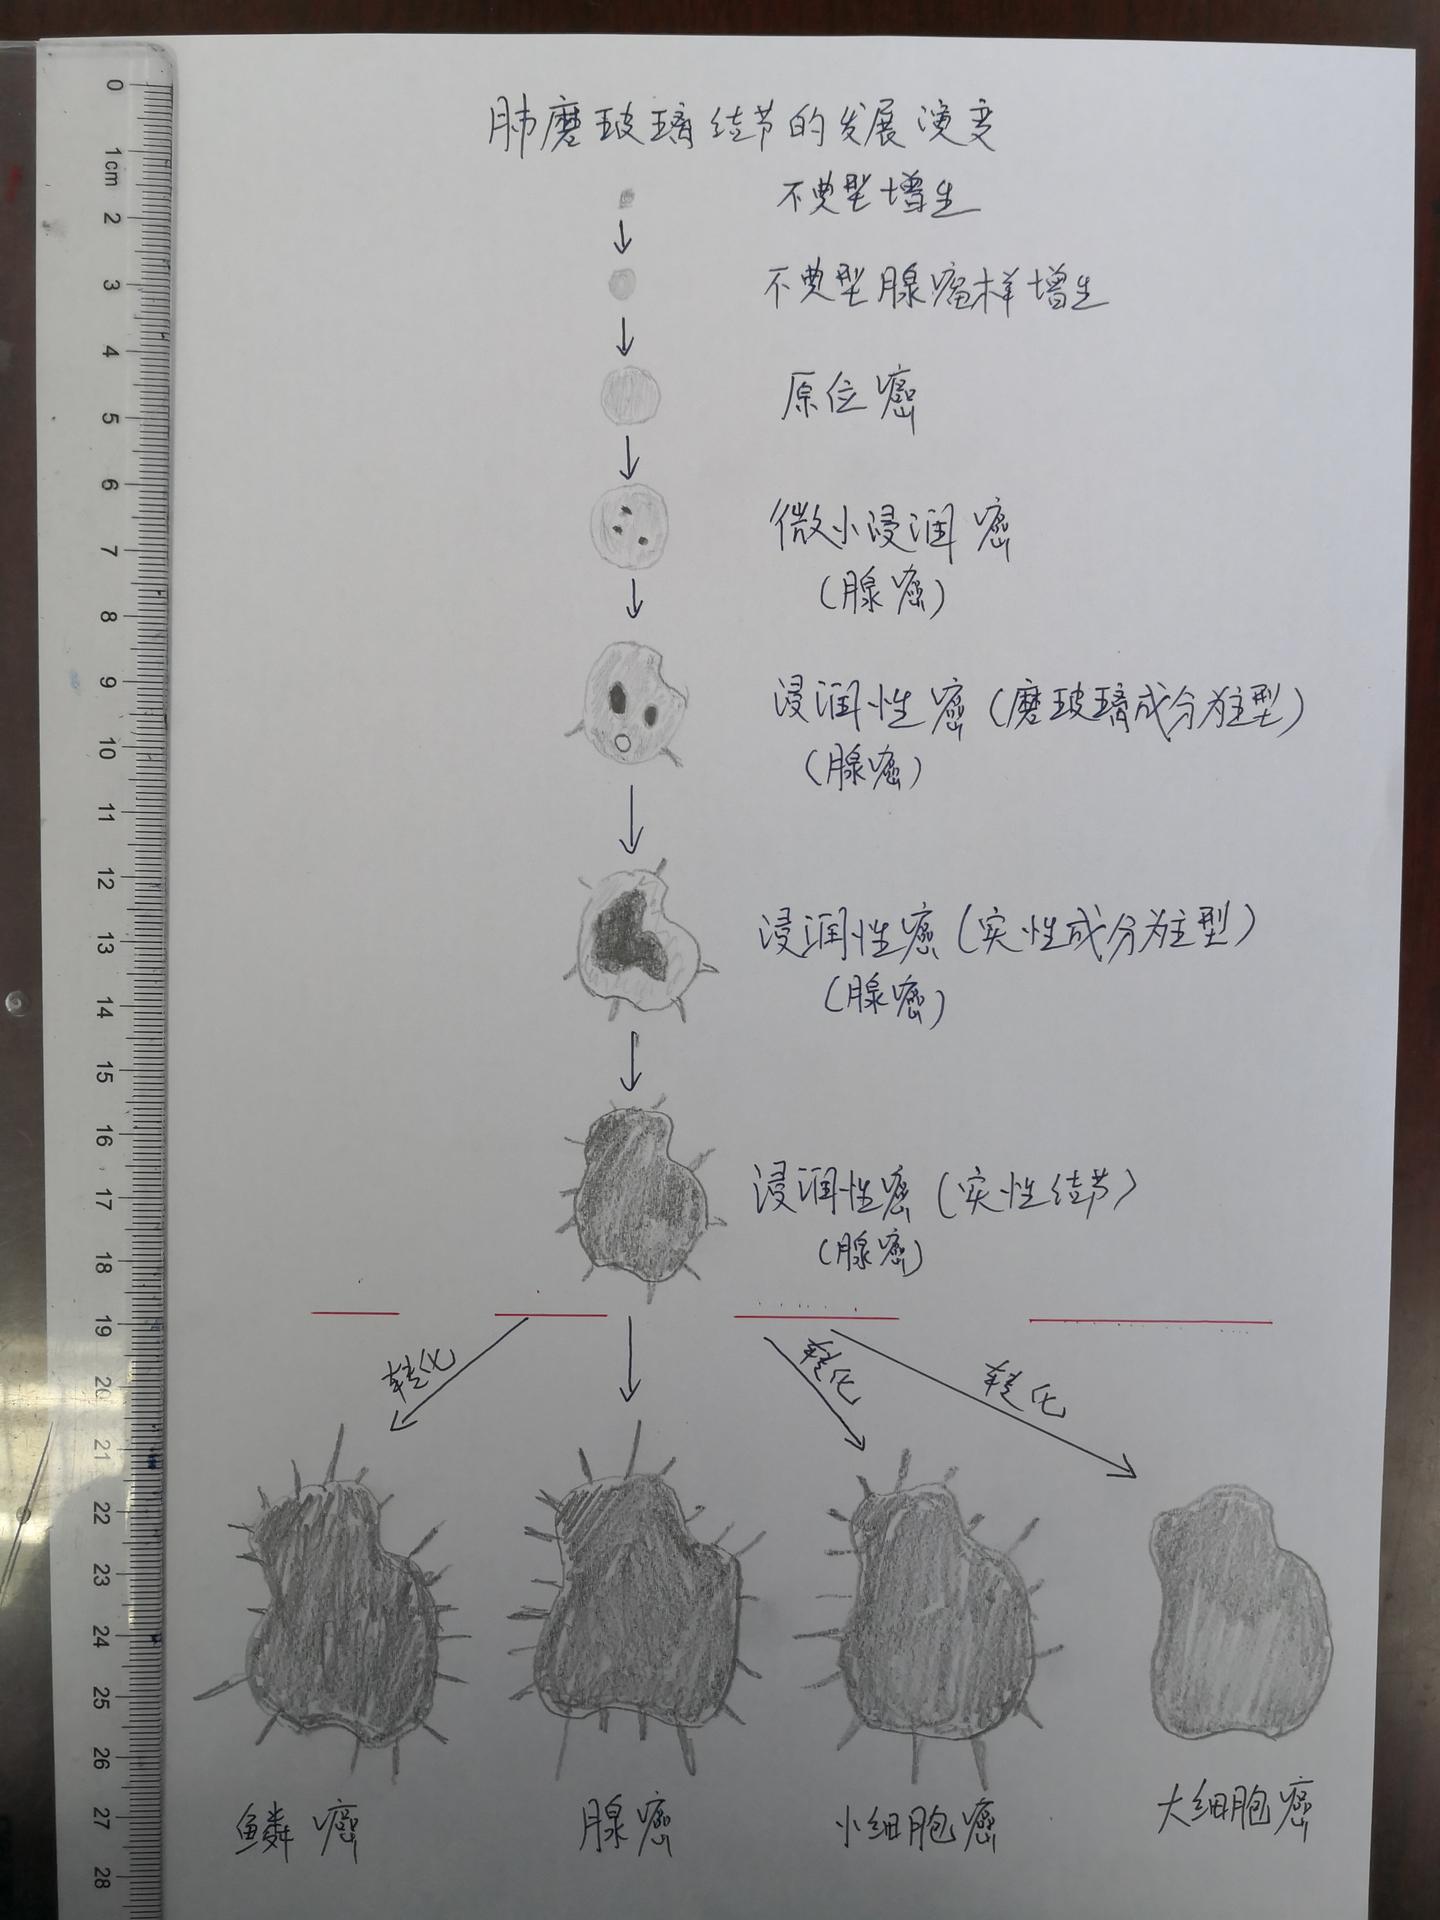 肺磨玻璃结节的发展演变
不典型增生
不典型腺瘤样增生
原位癌
微小浸润癌
(腺癌)
浸润性癌(磨玻璃成分为主型)
(腺癌)
浸润性癌(实性成分为主型)
(腺癌)
浸润性癌(实性结节)
(腺癌)
转化
转化
转化
鳞癌
腺癌
小细胞癌
大细胞癌
0
1cm
2
3
4
5
6
7
8
9
10
11
12
13
14
15
16
17
18
19
20
21
22
23
24
25
26
27
28